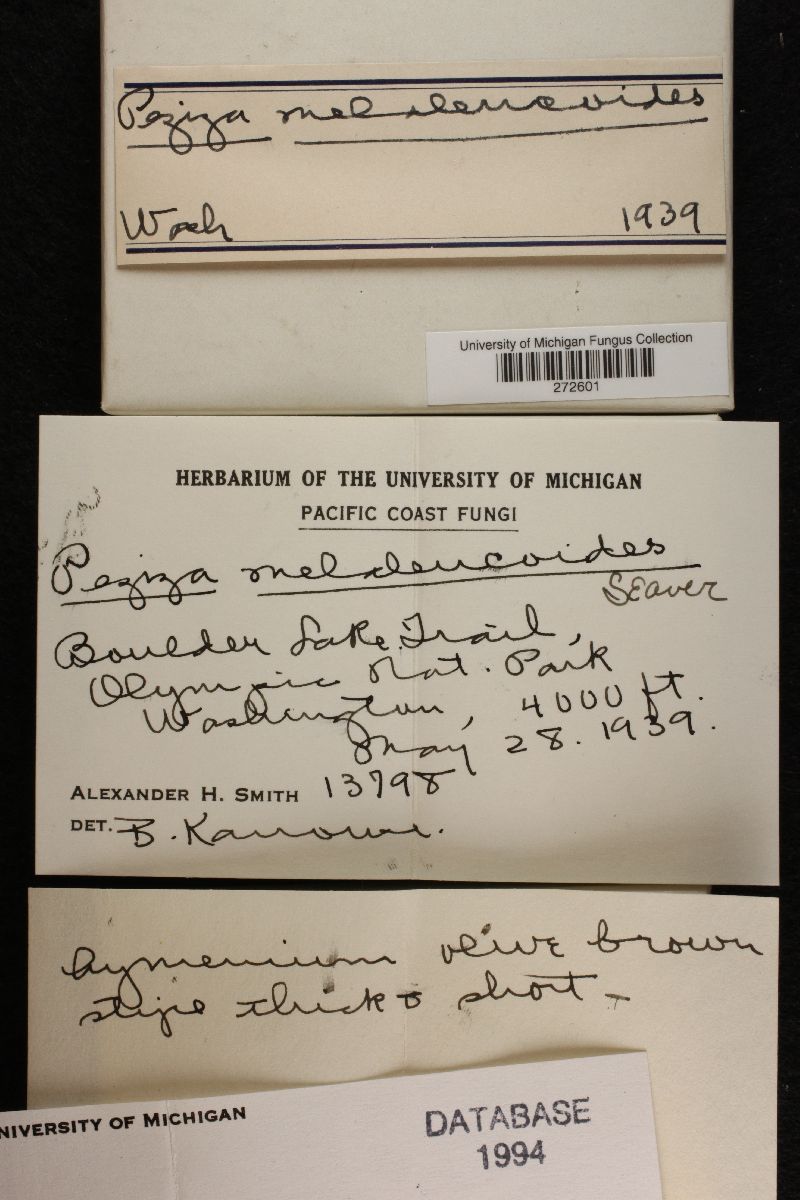 Peziza melaleucoides
Wash 1939
University of Michigan Fungus Collection
272601
HERBARIUM OF THE UNIVERSITY OF MICHIGAN
PACIFIC COAST FUNGI
Peziza melaleucoides
Seaver
Boulder Lake Trail,
Olympic Nat. Park
Washington, 4000 ft.
May 28. 1939.
ALEXANDER H. SMITH 13798
DET. B. Kanouse.
hymenium olive brown
stipe thick & short
NIVERSITY OF MICHIGAN
DATABASE
1994